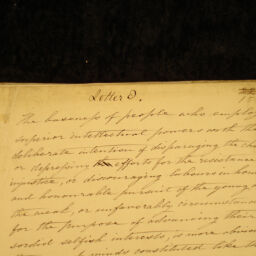 Letter D.
15
The baseness of people who employ
superior intellectual powers with the
deliberate intention of disparaging the
or depressing efforts for the resistance
injustice, or discouraging labours in
and honourable pursuit of the young
the weak, or unfavorably circumstanced
for the purpose of advancing their
sordid selfish interests, is more obvious
minds constituted like